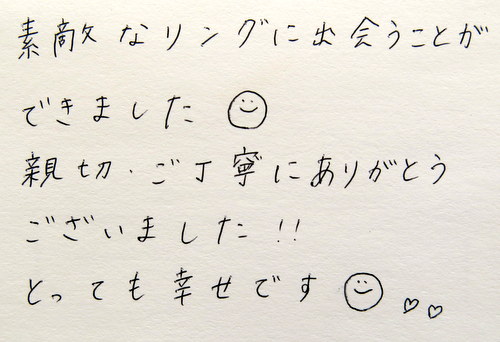 素敵なリングに出会うことが
できました☺
親切・ご丁寧にありがとう
ございました!!
とっても幸せです☺♡♡